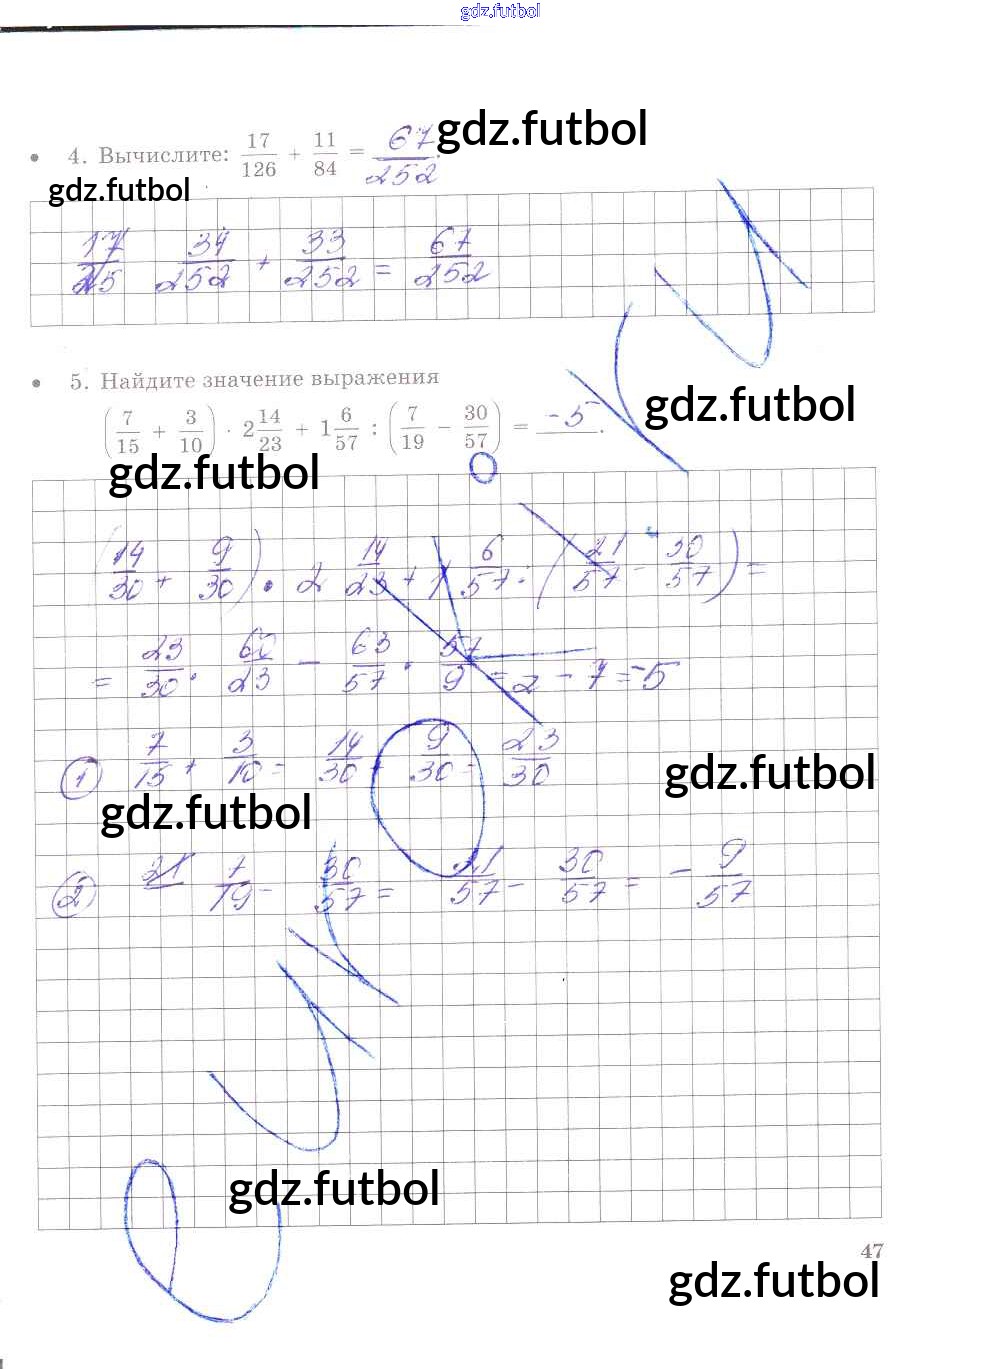 gdz.futbol
4. Вычислите: 17/126 + 11/84 = 67/252.
gdz.futbol
gdz.futbol
17/215 34/252 + 33/252 = 67/252
5. Найдите значение выражения
(7/15 + 3/10) · 2 14/23 + 1 6/57 : (7/19 − 30/57) = −5.
gdz.futbol
gdz.futbol
(14/30 + 9/30) · 2 14/23 + 1 6/57 : (21/57 − 30/57) =
= 23/30 · 60/23 − 63/57 · 57/9 = 2 − 7 = −5
① 7/15 + 3/10 = 14/30 + 9/30 = 23/30
gdz.futbol
gdz.futbol
② 21 7/19 − 30/57 = 21/57 − 30/57 = − 9/57
gdz.futbol
47
gdz.futbol